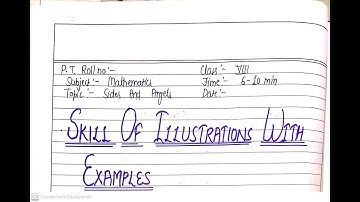 P.T. Roll no :- Class :- VIII
Subject :- Mathematics Time :- 6-10 min
Topic :- Sides And Angels Date :-
SKILL OF ILLUSTRATIONS WITH
EXAMPLES
Scanned with CamScanner